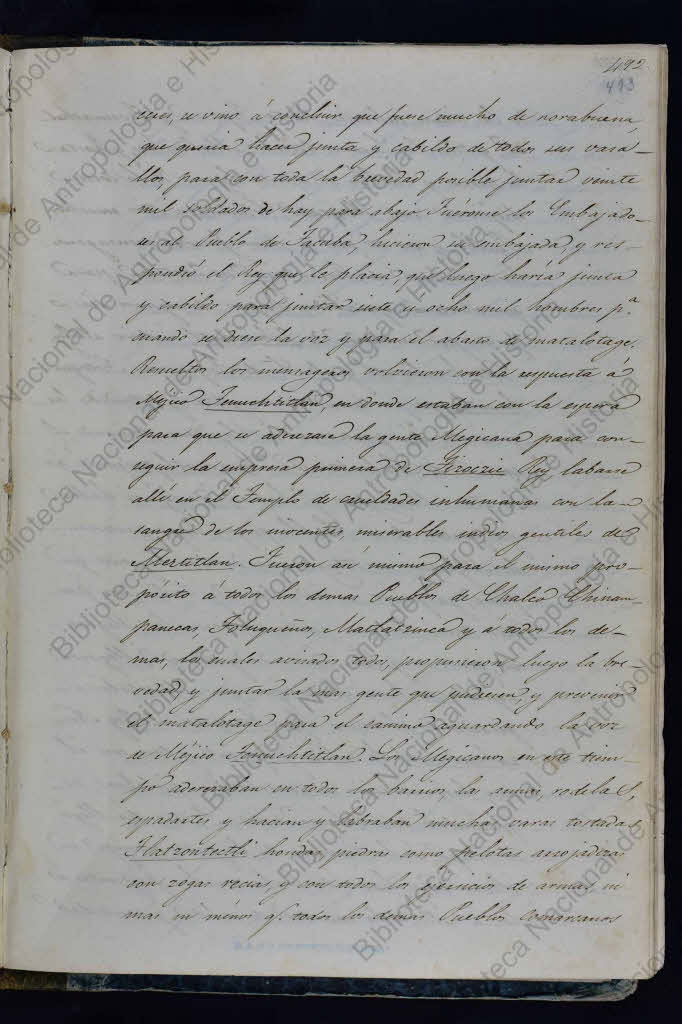 492
493
ceres, se vino á concluir que fuese mucho de norabuena,
que queria hacer junta y cabildo de todos sus vasa-
llos, para con toda la brevedad posible juntar veinte
mil soldados de hay para abajo. Fuéronse los Embajado-
res al Pueblo de Tacuba, hicieron su embajada, y res-
pondió el Rey que le placia, que luego haría junta
y cabildo para juntar siete ú ocho mil hombres pª
cuando se diese la voz y para el abasto de matalotage.
Resueltos los mensageros volvieron con la respuesta á
Méjico Tenuchtitlan, en donde estaban con la espera
para que se aderezase la gente Megicana para con-
seguir la empresa primera de Tizoczic Rey, labarse
allí en el Templo de crueldades inhumanas con la
sangre de los inocentes, miserables indios gentiles de
Meztitlan. Fueron así mismo para el mismo pro-
pósito á todos los demas Pueblos de Chalco Chinam-
panecas, Toluqueños, Matlatzinca y á todos los de-
mas, los cuales avisados todos, propusieron luego la bre-
vedad, y juntar la mas gente que pudiesen, y prevenir
el matalotage para el camino aguardando la voz
de Méjico Tenuchtitlan. Los Megicanos en este tiem-
po aderezaban en todos los barrios, las armas, rodelas,
espadartes y hacian y labraban muchas varas tostadas
Tlatzontectli hondas, piedras como pelotas arrojadizas
con sogas recias, y con todos los ejercicios de armas, ni
mas ni ménos q.e todos los demas Pueblos comarcanos
Biblioteca Nacional de Antropología e Historia